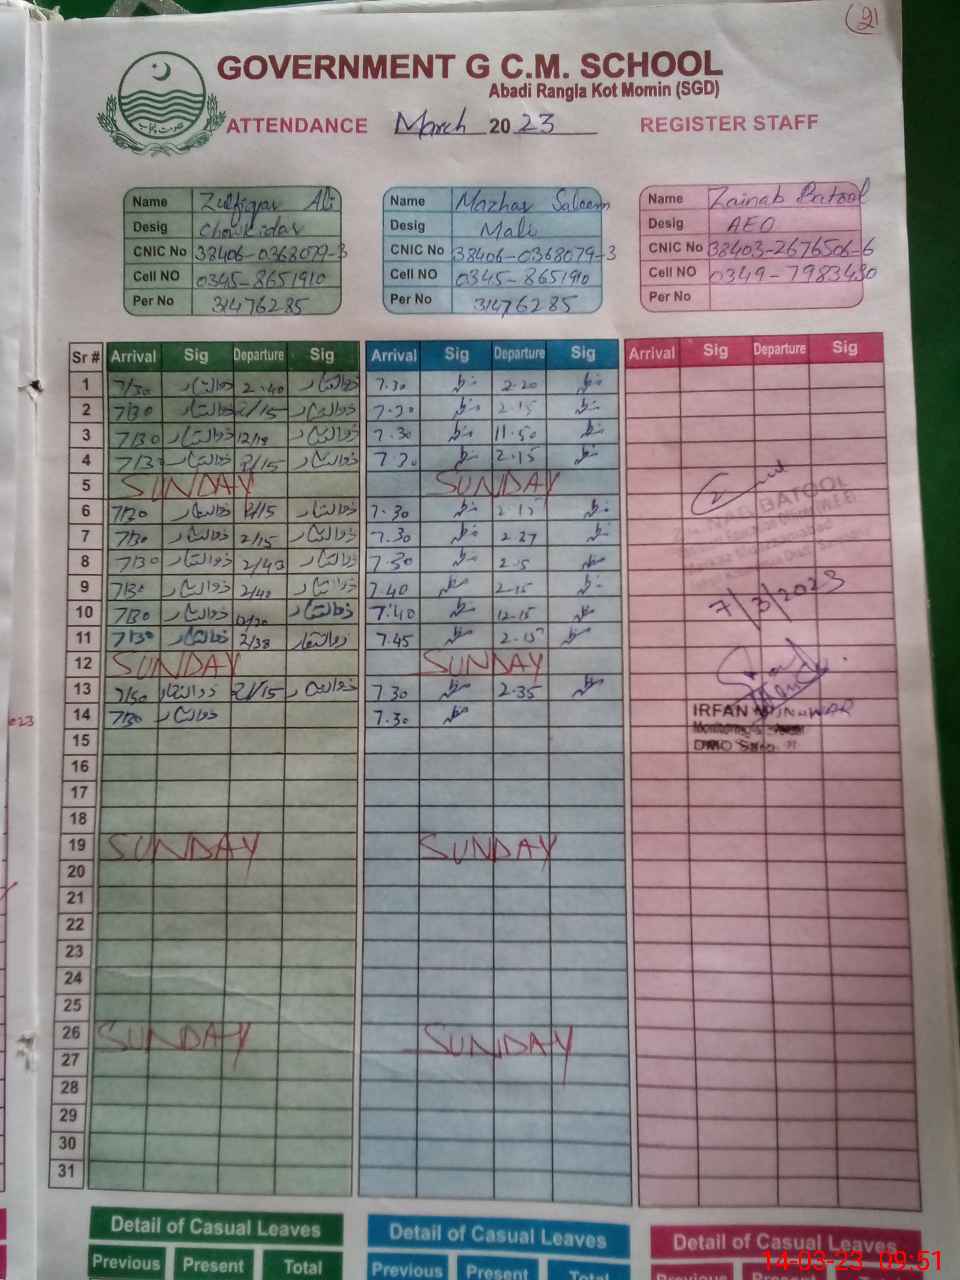 (21
GOVERNMENT G C.M. SCHOOL
Abadi Rangla Kot Momin (SGD)
ATTENDANCE March 2023 REGISTER STAFF
Name Zulfiqar Ali Name Mazhar Saleem Name Zainab Batool
Desig Chowkidar Desig Mali Desig AEO
CNIC No 38406-0368079-3 CNIC No 38406-0368079-3 CNIC No 38403-2676506-6
Cell NO 0345-8651910 Cell NO 0345-8651910 Cell NO 0349-7983430
Per No 31476285 Per No 31476285 Per No
Sr # Arrival Sig Departure Sig Arrival Sig Departure Sig Arrival Sig Departure Sig
1 7/30 ذوالفقار 2.40 ذوالفقار 7.30 مظہر 2.20 مظہر
2 7/30 ذوالفقار 2/15 ذوالفقار 7.30 مظہر 2.15 مظہر
3 7/30 ذوالفقار ذوالفقار 7.30 مظہر 11.50 مظہر
4 7/30 ذوالفقار 2/15 ذوالفقار 7.30 مظہر 2.15 مظہر
5 SUNDAY SUNDAY
6 7/30 ذوالفقار 2/15 ذوالفقار 7.30 مظہر 2.15 مظہر
ZAINAB BATOOL
7 7/30 ذوالفقار 2/15 ذوالفقار 7.30 مظہر 2.27 مظہر
8 7/30 ذوالفقار 2/43 ذوالفقار 7.30 مظہر مظہر
9 7/30 ذوالفقار 2/40 ذوالفقار 7.40 مظہر 2.15 مظہر
10 7/30 ذوالفقار ذوالفقار 7:40 مظہر 12.15 مظہر 7/3/2023
11 7/30 ذوالفقار 2/38 ذوالفقار 7.45 مظہر 2.15 مظہر
12 SUNDAY SUNDAY
13 7/30 ذوالفقار 2/15 ذوالفقار 7.30 مظہر 2.35 مظہر
14 7/30 ذوالفقار 7.30 مظہر IRFAN MUNAWAR
15 DMO
16
17
18
19 SUNDAY SUNDAY
20
21
22
23
24
25
26 SUNDAY SUNDAY
27
28
29
30
31
Detail of Casual Leaves Detail of Casual Leaves Detail of Casual Leaves
Previous Present Total Previous Present Total Present
14-03-23 09:51